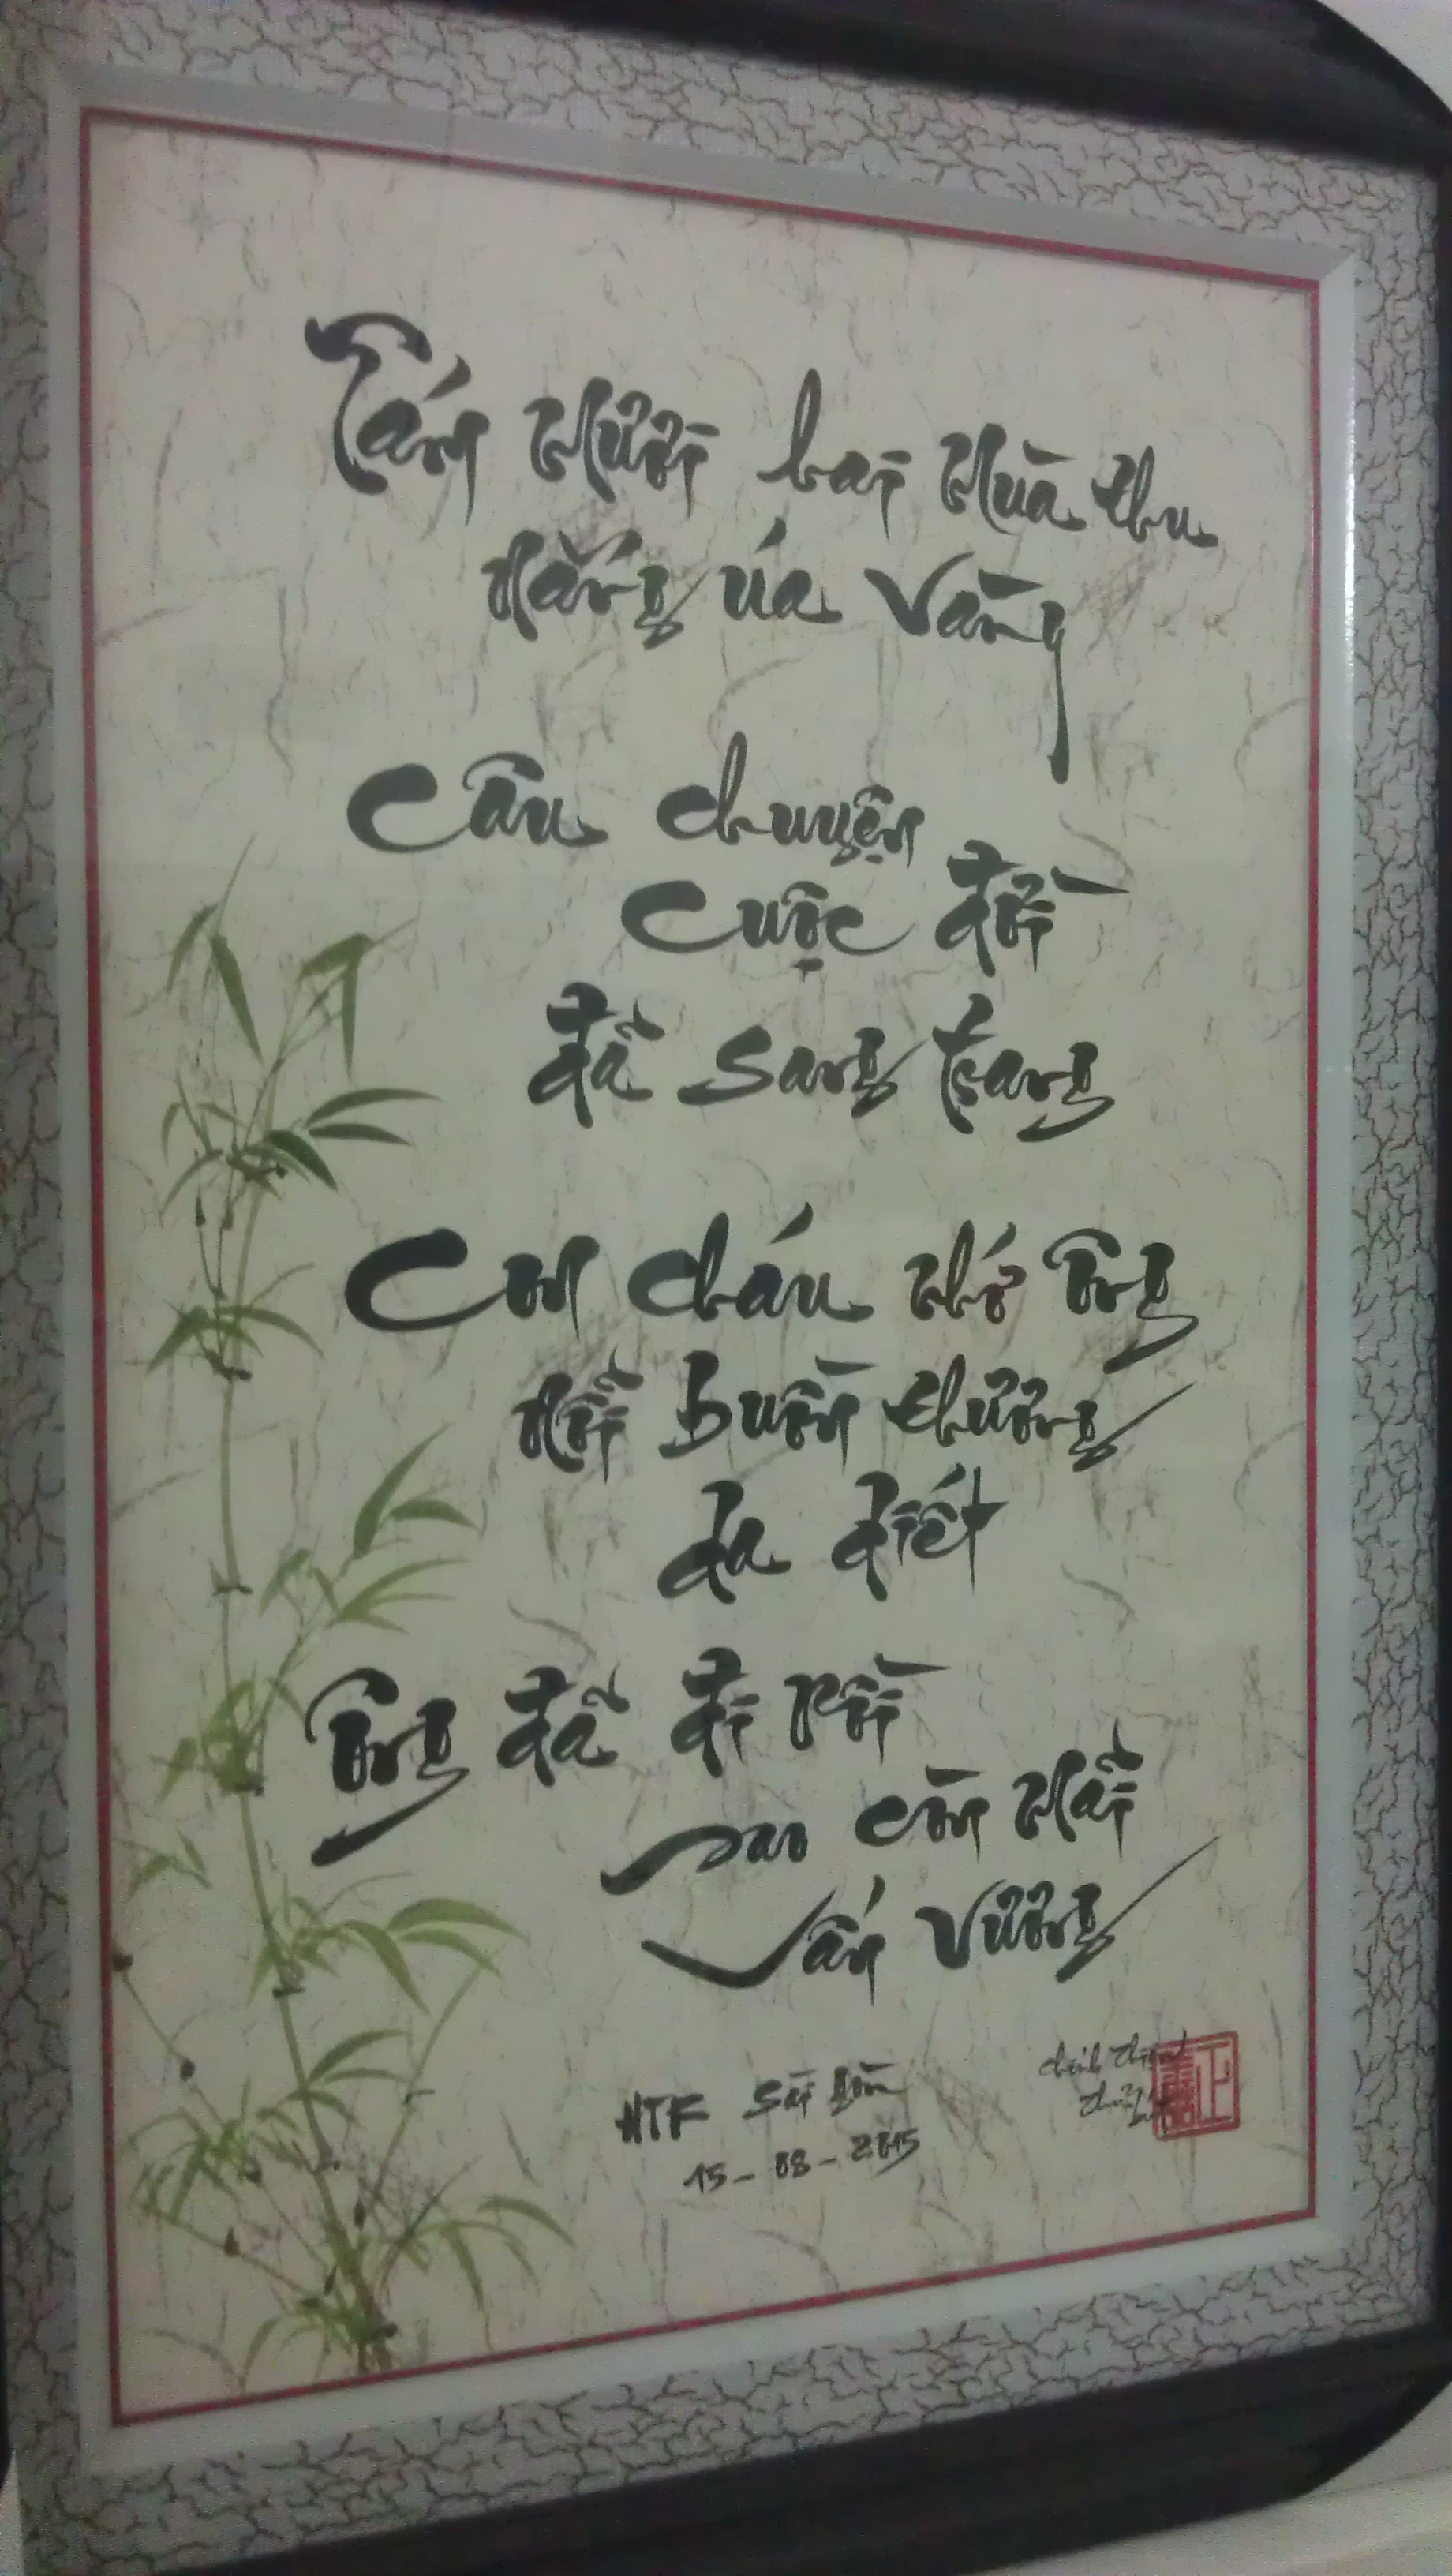 Tám mươi hai mùa thu
nắng úa vàng
Câu chuyện
cuộc đời
đã sang trang
Con cháu nhớ ông
nỗi buồn thương
da diết
Ông đã đi rồi
sao còn mãi
vấn vương
HTF Sài Gòn
15-08-2015
Chính
正